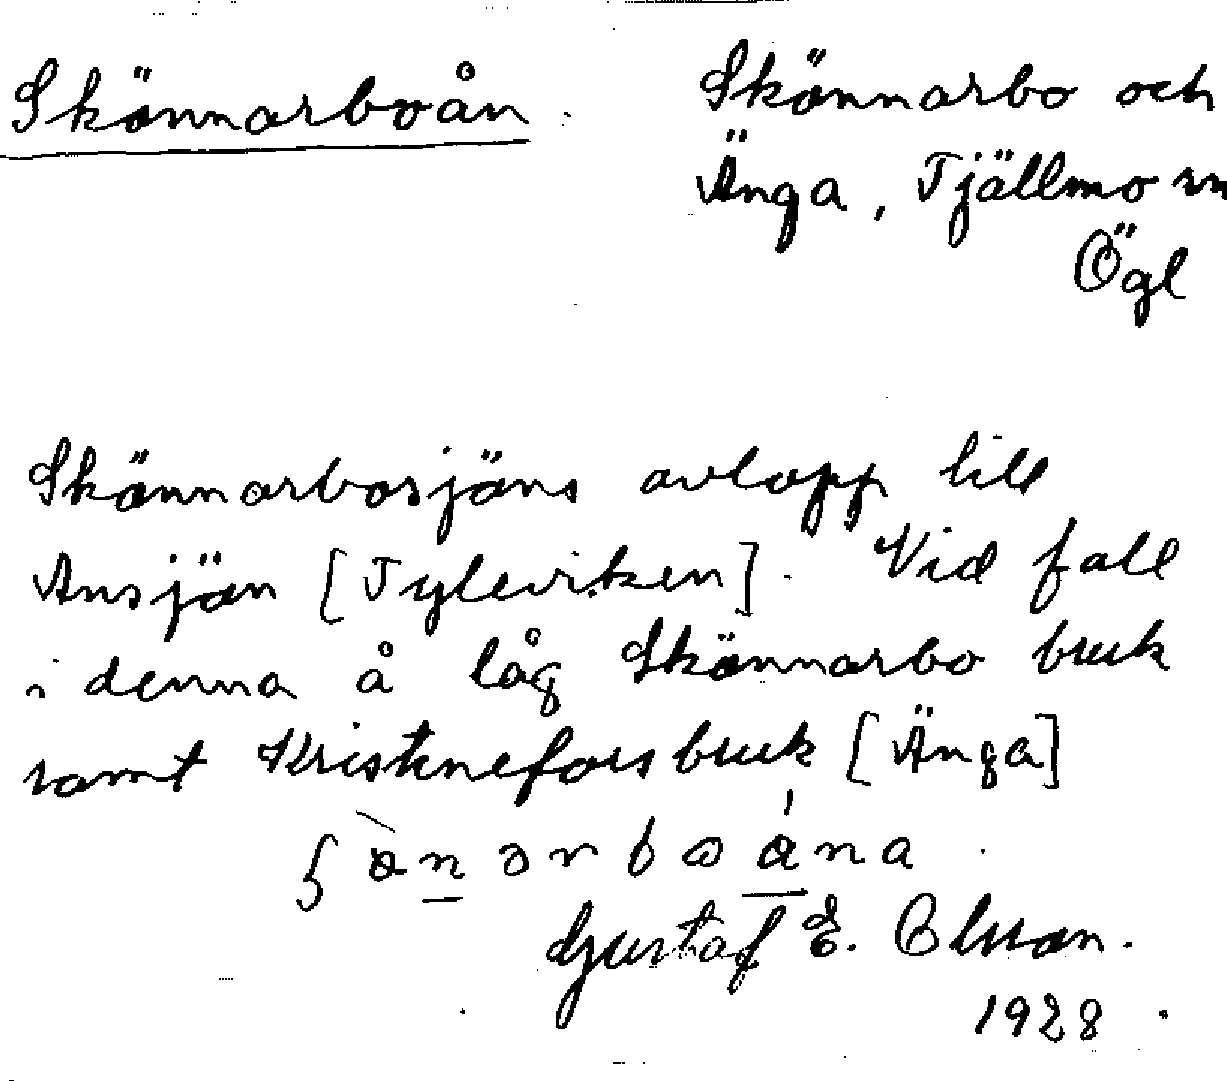 Skönnarboån. Skönnarbo och
Änga, Tjällmo sn
Ögl
Skönnarbosjöns avlopp till
Ansjön [Tyleviken]. Vid fall
i denna å låg Skönnarbo bruk
samt Kristineforsbruk [Änga]
Gustaf E. Olsson.
1928.